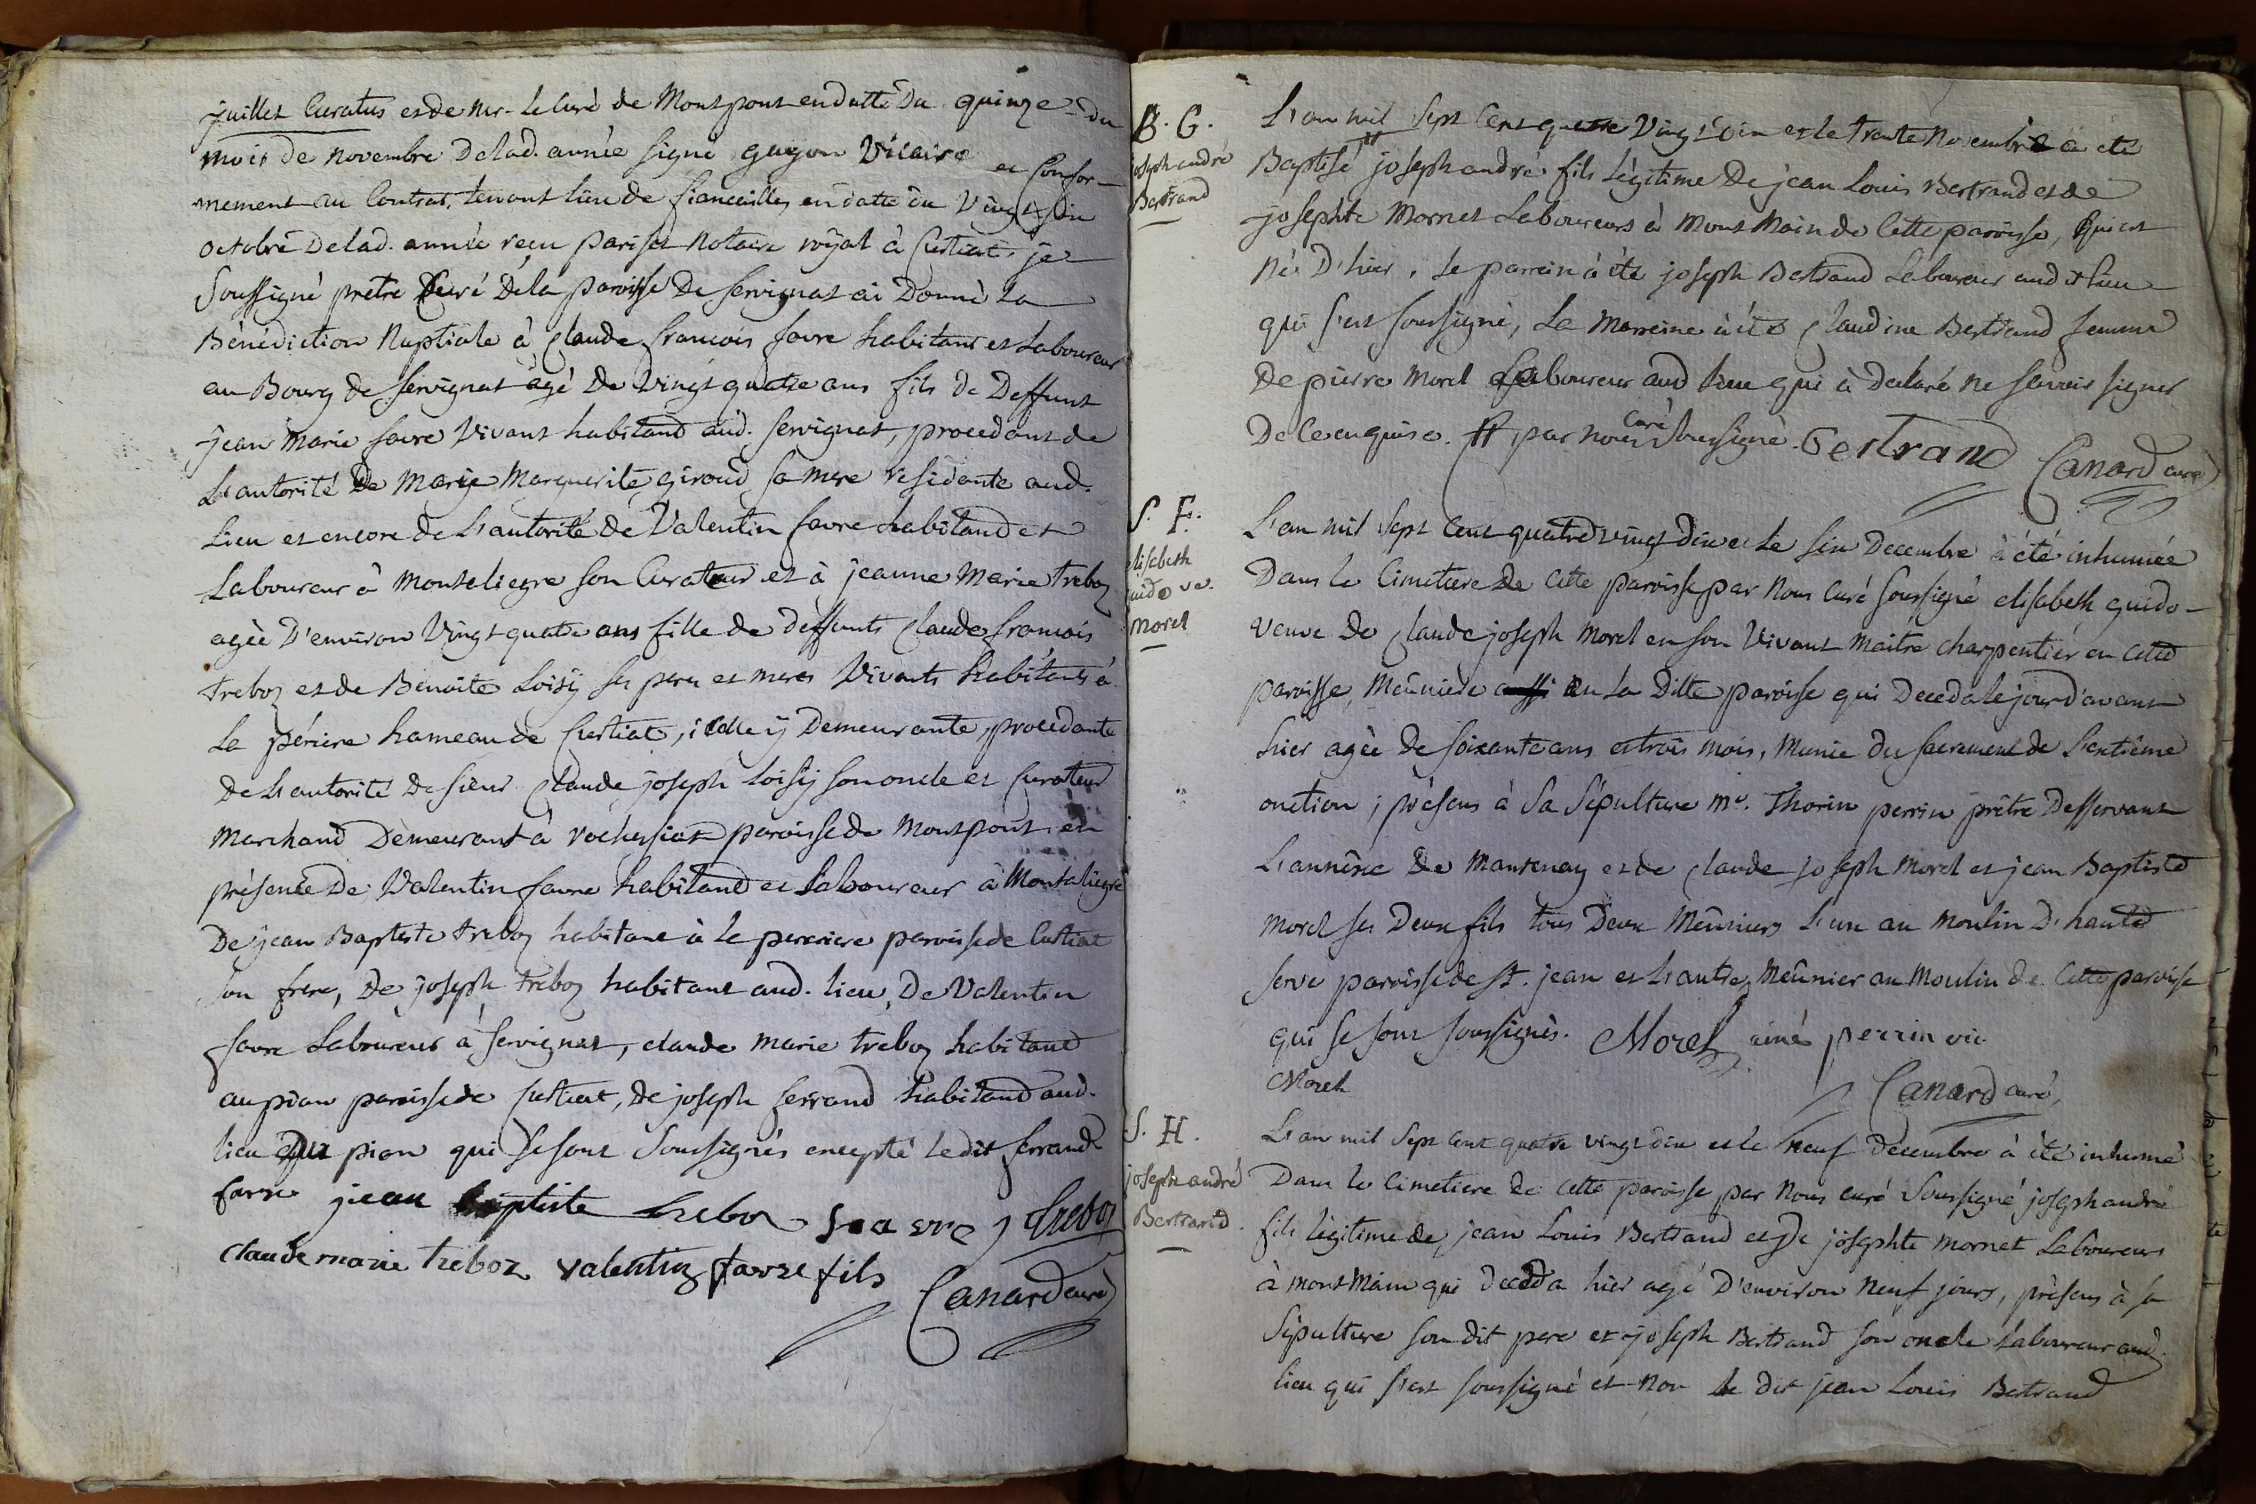 juillet Curatus et de mr. le Curé de Montpont en datte Du quinze du
mois de novembre De lad. année signé guyon Vicaire et Confor-
mement au Contrat, tenant lieu de fiancailles en datte du Vingt six
octobre De lad. année reçu pariset Notaire royal à Curtiat. je
Soussigné prêtre Curé De la paroisse De servignat ai Donné la
Bénédiction Nuptiale à Claude françois favre habitant et Laboureur
au Bourg de servignat agé De vingt quatre ans fils De Deffunt
jean marie favre Vivant habitand aud. servignat, procedant de
L'autorité De marie marguerite giroud sa mere residante aud.
Lieu et encore de L'autorité de Valentin favre habitand et
Laboureur à montaliegre son Curateur et à jeanne marie treboz
agèe D'environ Vingt quatre ans fille de deffunts Claude françois
treboz et de Benoite Loisÿ ses pere et mere Vivants habitants à
la périere hameau de Curtiat, icelle ÿ Demeurante, procedante
de L'autorité De sieur Claude joseph loisÿ son oncle et Curateur
marchand Demeurant à rochessiat paroisse de montpont, en
présence De Valentin favre habitand et Laboureur à Montaliegre
De jean Baptiste treboz habitant à la perriere paroisse de Curtiat
son frere, De joseph treboz habitant aud. lieu, De Valentin
favre Laboureur à servignat, claude marie treboz habitand
au pion paroisse de Curtiat, de joseph ferrand habitand aud.
lieu du pion qui se sont soussignés excepté le dit ferrand
favre jean baptiste treboz favre j treboz
claude marie treboz valentin favre fils
Canard curé
B. G.
joseph andré
Bertrand
L'an mil sept Cent quatre Vingt Dix et le trente novembre à été
Baptisé # joseph andré fils Légitime De jean Louis Bertrand et de
josephte Mornet Laboureurs à Mont Main de Cette paroisse, qui est
né D'hier, le parrein à été joseph Bertrand Laboureur audit lieu
qui s'est soussigné, La Marreine à été Claudine Bertrand femme
De pierre Morel Laboureur aud lieu qui à declaré ne sçavoir signer
De ce enquise. # par nous Curé soussigné. Bertrand Canard curé
S. F.
elisabeth
guido ve.
morel
L'an mil sept Cent quatre vingt dix et le six Decembre à été inhumée
Dans le Cimetiere De Cette paroisse par Nous Curé soussigné elisabeth guido
veuve de Claude joseph Morel en son Vivant Maître charpentier en cette
paroisse, Meûniere aussi en la Ditte paroisse qui Deceda le jour d'avant
hier agée de soixante ans et trois mois, Munie du sacrement de L'extrême
onction ; présens à sa Sépulture mr. Thorin perrin prêtre Desservant
L'annéxe De Mantenay et de Claude joseph Morel et jean Baptiste
Morel ses Deux fils tous Deux Meûniers L'un au Moulin D'haute
serve paroisse de St. jean et L'autre Meûnier au Moulin de Cette paroisse
qui se sont soussignés. Morel ainé perrin vic
Morel
Canard curé,
S. H.
joseph andré
Bertrand.
L'an mil sept Cent quatre vingt dix et le neuf Decembre à été inhumé
Dans le Cimetiere de cette paroisse par Nous curé soussigné joseph andré
fils légitime de jean Louis Bertrand et De josephte Mornet Laboureurs
à mont Main qui deceda hier agé D'environ neuf jours, présens à sa
Sépulture son dit pere et joseph Bertrand son oncle Laboureur aud.
lieu qui s'est soussigné et non le dit jean Louis Bertrand